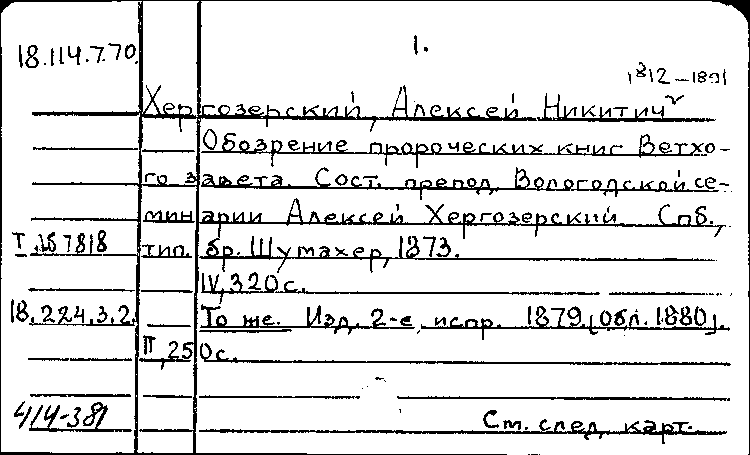 18.114.7.70. 1.
1812-1891
Хергозерский, Алексей Никитич
Обозрение пророческих книг Ветхо-
го завета. Сост. препод. Вологодской се-
минарии Алексей Хергозерский. Спб.,
тип. бр. Шумахер, 1873.
IV, 320 с.
18.224.3.2. То же. Изд. 2-е, испр. 1879. [обл. 1880].
II, 250 с.
414-381 См. след. карт.